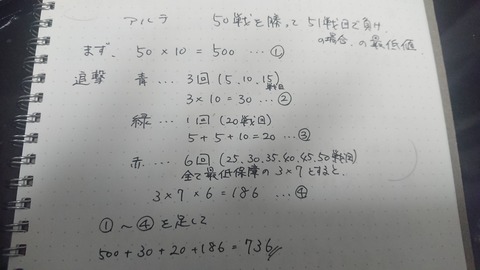 アルテ 50戦を勝って 51戦目で負け
の場合、の最低値
まず、 50 × 10 = 500 … ①
追撃 青 … 3回 (5、10、15戦目)
3 × 10 = 30 … ②
緑 … 1回 (20戦目)
5 + 5 + 10 = 20 … ③
赤 … 6回 (25、30、35、40、45、50戦目)
全て最低保障の 3×7 とすると、
3 × 7 × 6 = 186 … ④
① 〜 ④ を足して
500 + 30 + 20 + 186 = 736